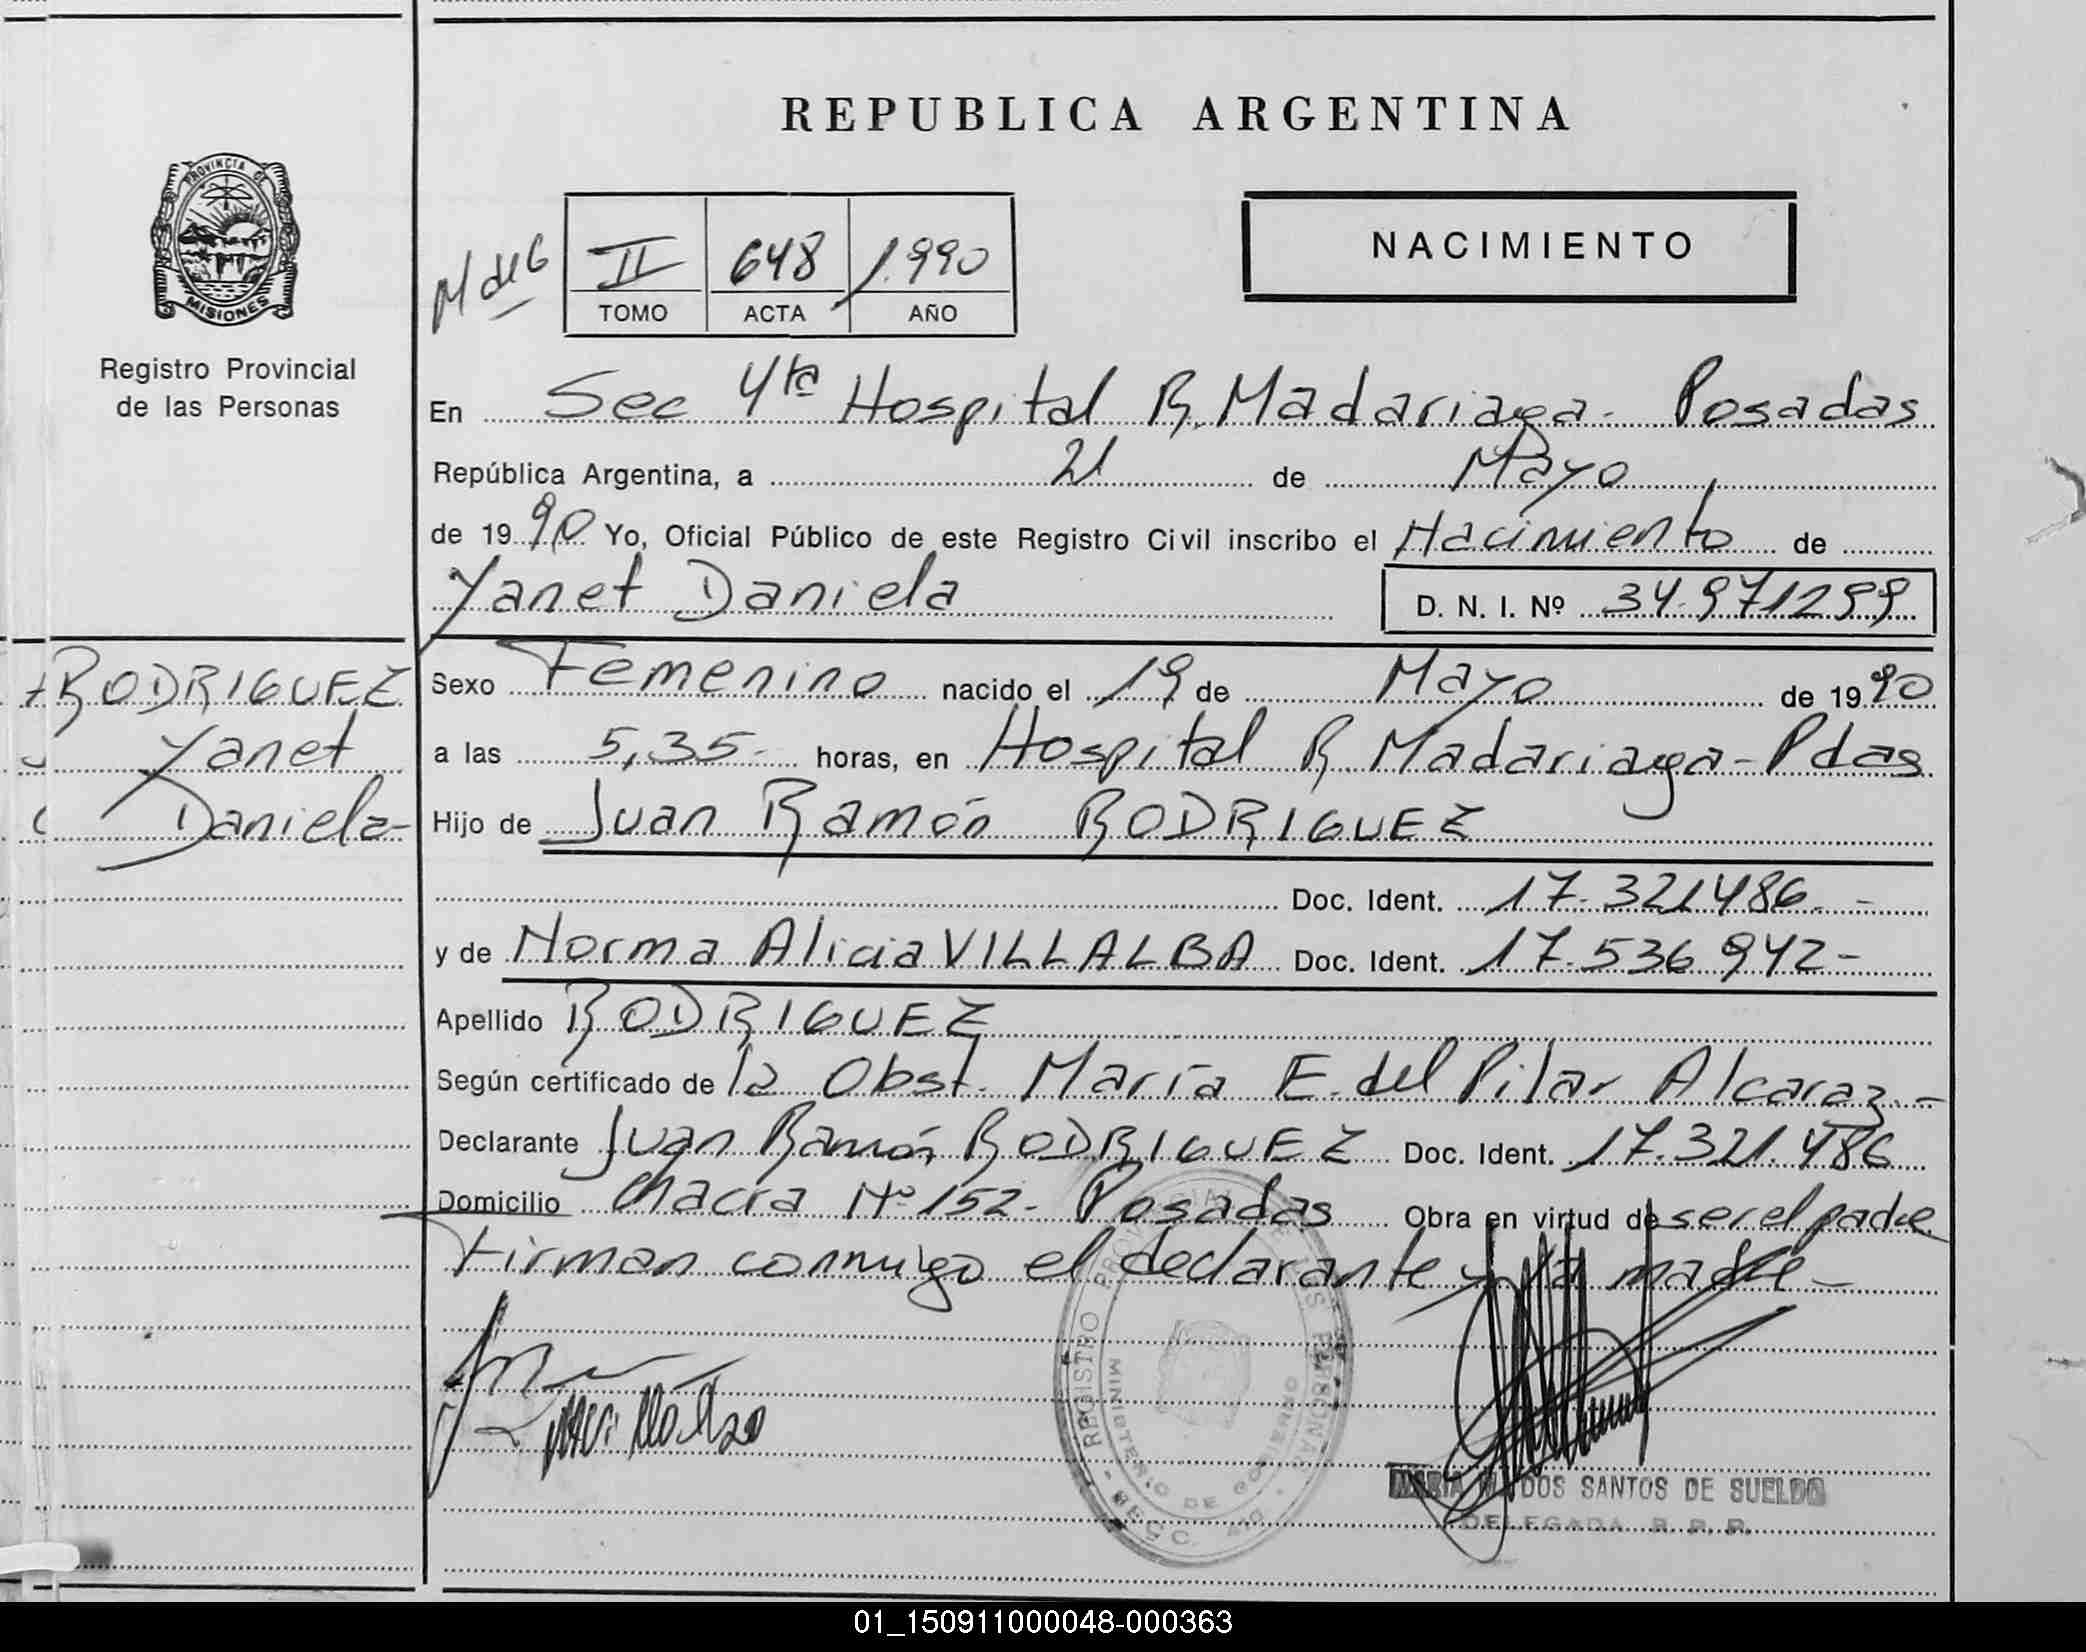 REPUBLICA ARGENTINA
PROVINCIA DE
MISIONES
Registro Provincial
de las Personas
NACIMIENTO
II 648 1.990
TOMO ACTA AÑO
En Sec 4ta Hospital R. Madariaga - Posadas
República Argentina, a 21 de Mayo
de 1990 Yo, Oficial Público de este Registro Civil inscribo el Nacimiento de
Yanet Daniela D. N. I. Nº 34.971299
RODRIGUEZ
Yanet
Daniela-
Sexo Femenino nacido el 19 de Mayo de 1990
a las 5,35- horas, en Hospital R. Madariaga - Pdas
Hijo de Juan Ramón RODRIGUEZ
Doc. Ident. 17.321486. -
y de Norma Alicia VILLALBA Doc. Ident. 17.536942-
Apellido RODRIGUEZ
Según certificado de la Obst. María E. del Pilar Alcaraz.-
Declarante Juan Ramón RODRIGUEZ Doc. Ident. 17.321.486
Domicilio Chacra Nº 152- Posadas Obra en virtud de ser el padre
Firman conmigo el declarante y la madre-
REGISTRO PROVINCIAL DE LAS PERSONAS
MINISTERIO DE GOBIERNO
MARIA DOS SANTOS DE SUELDO
DELEGADA R. P. P.
01_150911000048-000363